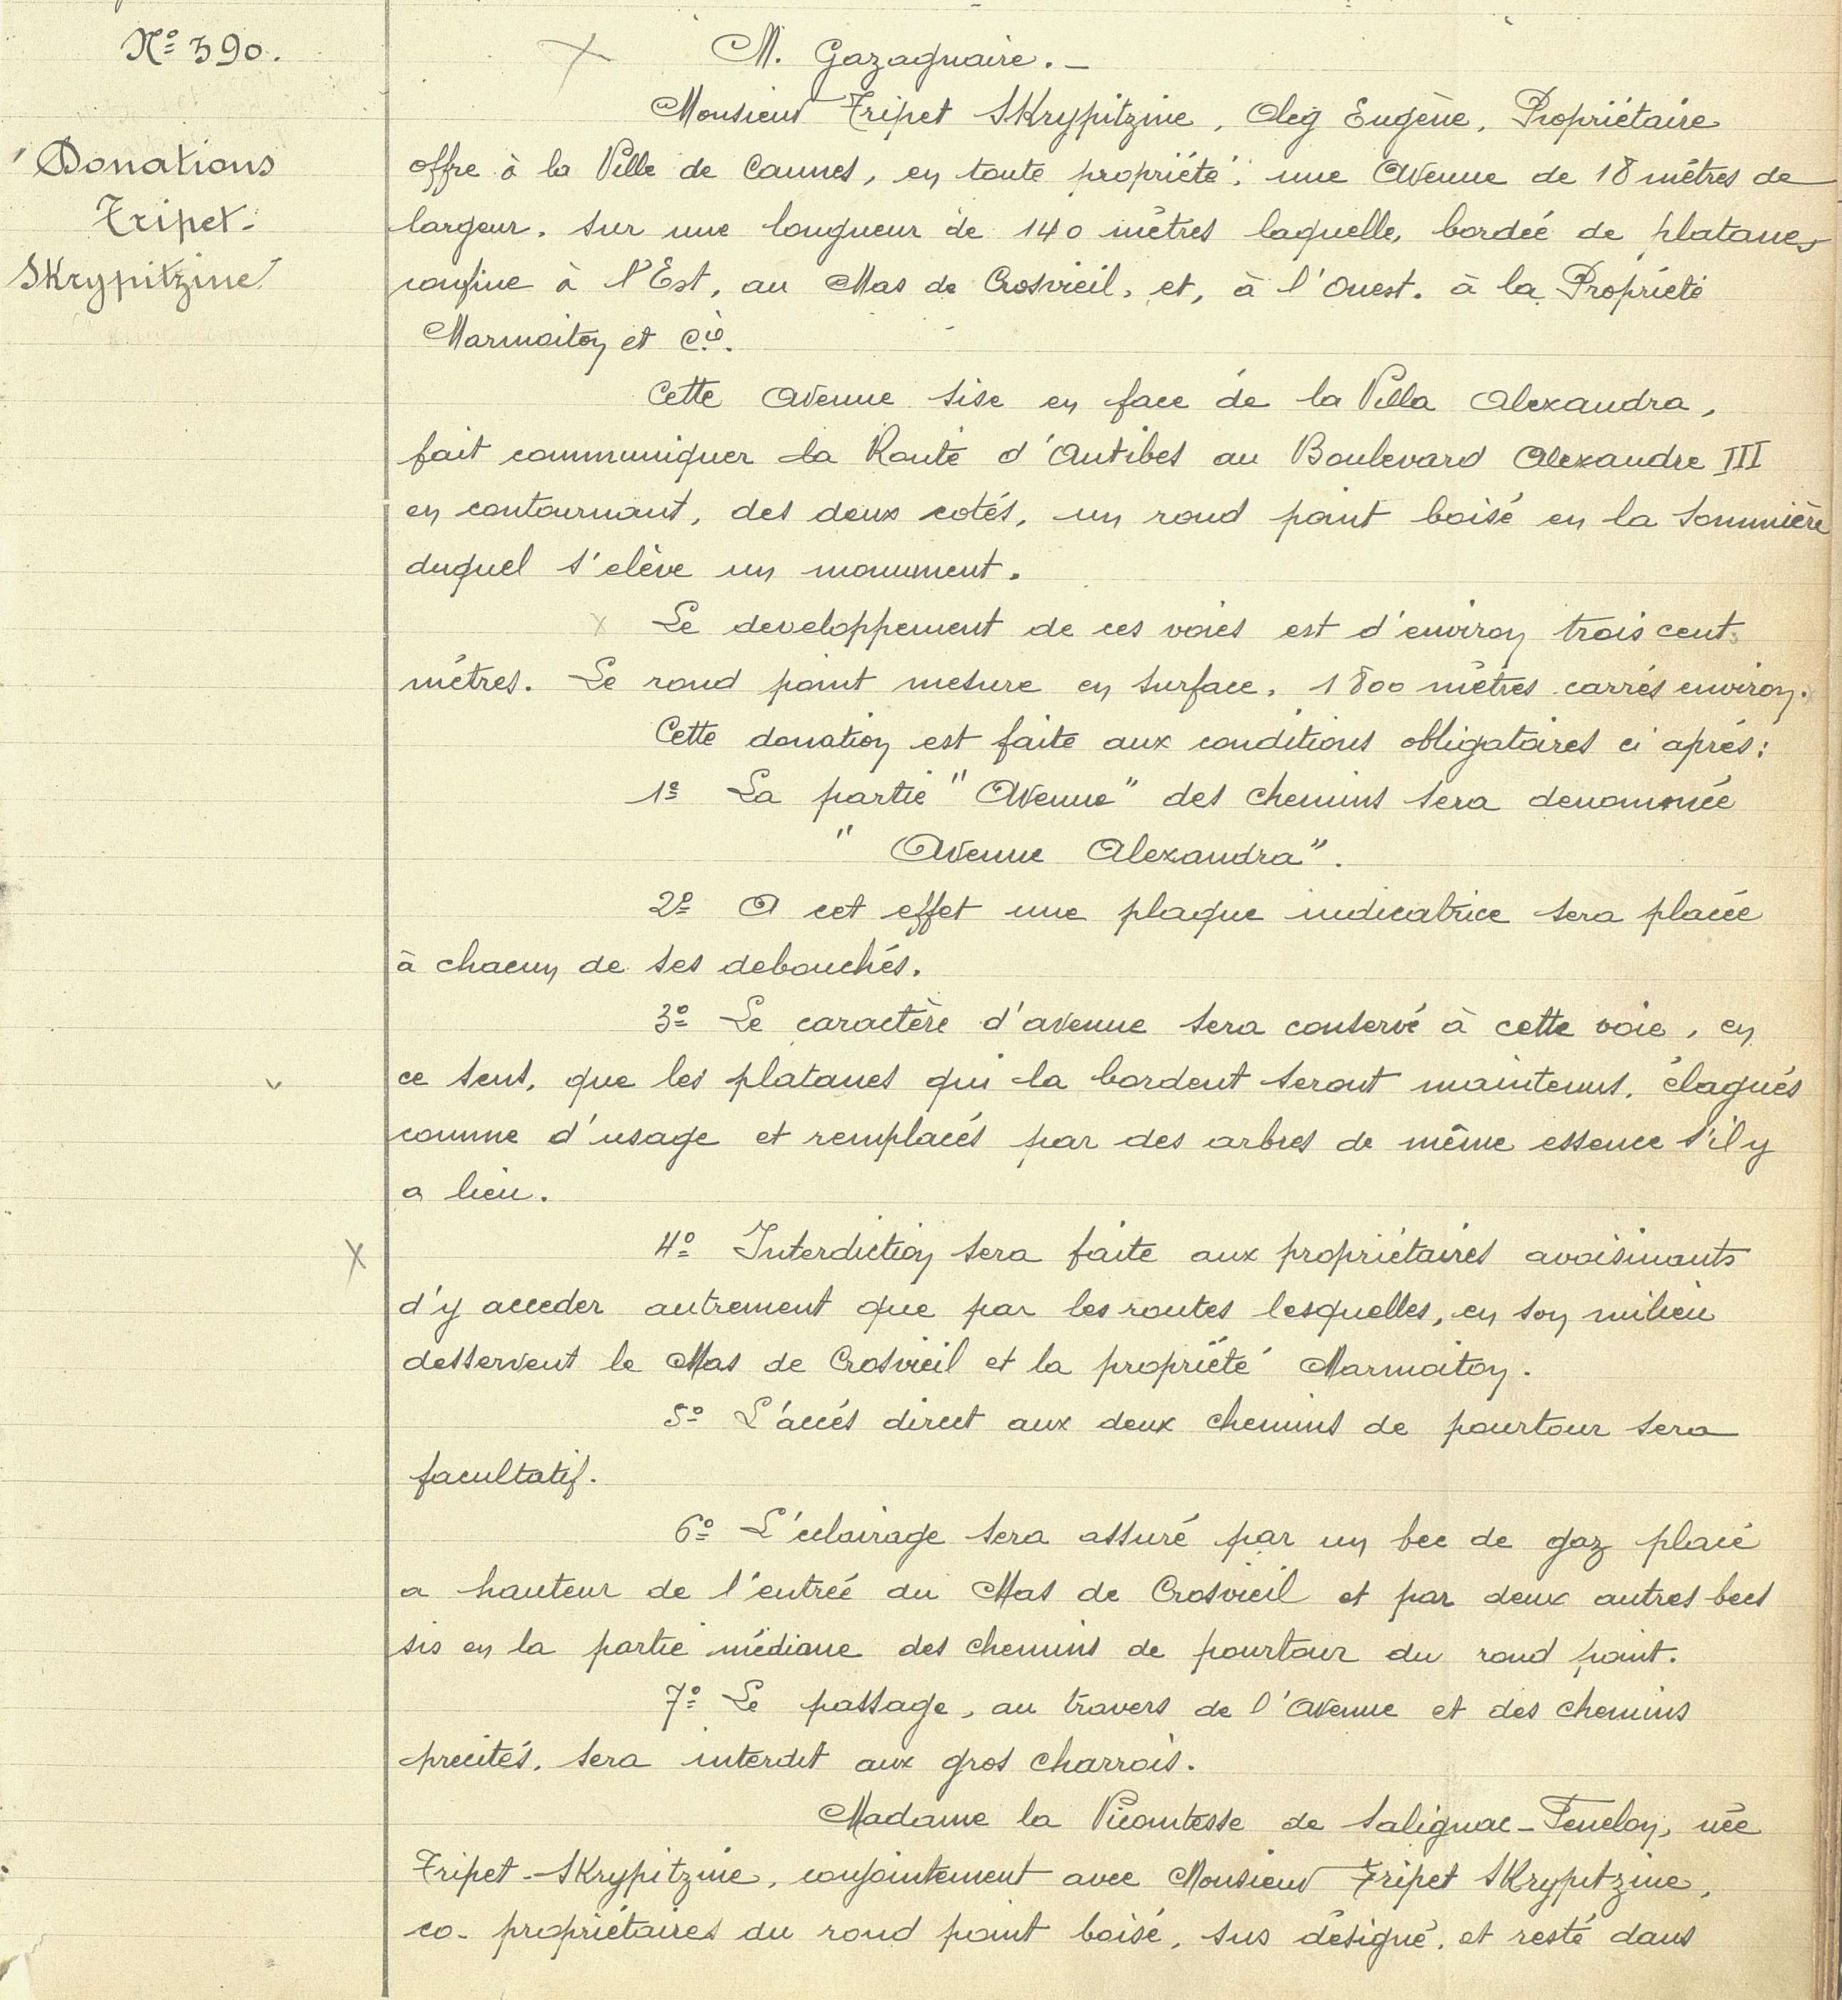 N° 390.
Donations
Tripet-
Skrypitzine
M. Gazagnaire. -
Monsieur Tripet Skrypitzine, Oleg Eugène, Propriétaire
offre à la Ville de Cannes, en toute propriété, une Avenue de 18 mètres de
largeur, sur une longueur de 140 mètres laquelle, bordée de platanes
confine à l'Est, au Mas de Crosvieil, et, à l'Ouest, à la Propriété
Marmoiton et Cie.
Cette Avenue sise en face de la Villa Alexandra,
fait communiquer la Route d'Antibes au Boulevard Alexandre III
en contournant, des deux cotés, un rond point boisé en la sommière
duquel s'elève un monument.
Le developpement de ces voies est d'environ trois cents
mètres. Le rond point mesure en surface, 1800 mètres carrés environ.
Cette donation est faite aux conditions obligatoires ci après:
1° La partie "Avenue" des chemins sera denommée
"Avenue Alexandra".
2° A cet effet une plaque indicatrice sera placée
à chacun de ses debouchés.
3° Le caractère d'avenue sera conservé à cette voie, en
ce sens, que les platanes qui la bordent seront maintenus, élagués
comme d'usage et remplacés par des arbres de même essence s'il y
a lieu.
4° Interdiction sera faite aux propriétaires avoisinants
d'y acceder autrement que par les routes lesquelles, en son milieu
desservent le Mas de Crosvieil et la propriété Marmoiton.
5° L'accés direct aux deux chemins de pourtour sera
facultatif.
6° L'eclairage sera assuré par un bec de gaz placé
a hauteur de l'entrée du Mas de Crosvieil et par deux autres becs
sis en la partie médiane des chemins de pourtour du rond point.
7° Le passage, au travers de l'Avenue et des chemins
precités, sera interdit aux gros charrois.
Madame la Vicomtesse de Salignac-Fenelon, née
Tripet-Skrypitzine, conjointement avec Monsieur Tripet Skrypitzine,
co-propriétaires du rond point boisé, sus désigné, et resté dans